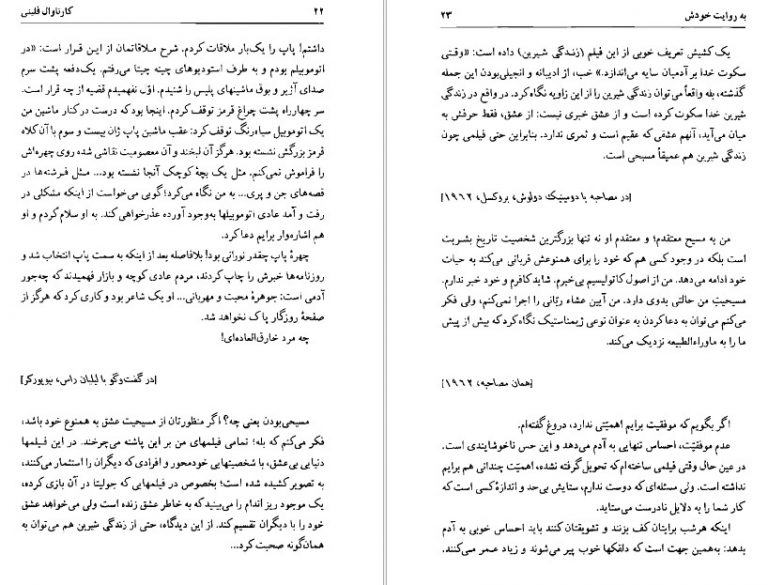 ۲۲ کارناوال فلینی
داشتم! پاپ را یک‌بار ملاقات کردم. شرح ملاقاتمان از این قرار است: «در
اتوموبیلم بودم و به طرف استودیوهای چینه چیتا می‌رفتم. یک‌دفعه پشت سرم
صدای آژیر و بوق ماشینهای پلیس را شنیدم. اوّل نفهمیدم قضیه از چه قرار است.
سر چهارراه پشت چراغ قرمز توقف کردم. اینجا بود که درست در کنار ماشین من
یک اتوموبیل سیاه‌رنگ توقف کرد: عقب ماشین پاپ ژان بیست و سوم با آن کلاه
قرمز بزرگش نشسته بود. هرگز آن لبخند و آن معصومیت نقاشی شده روی چهره‌اش
را فراموش نمی‌کنم. مثل یک بچهٔ کوچک آنجا نشسته بود... مثل فرشته‌ها در
قصه‌های جن و پری... به من نگاه می‌کرد؛ گویی می‌خواست از اینکه مشکلی در
رفت و آمد عادی اتوموبیلها به‌وجود آورده عذرخواهی کند. به او سلام کردم و او
هم اشاره‌وار برایم دعا کرد.
چهرهٔ پاپ چقدر نورانی بود! بلافاصله بعد از اینکه به سمت پاپ انتخاب شد و
روزنامه‌ها خبرش را چاپ کردند، مردم عادی کوچه و بازار فهمیدند که چه‌جور
آدمی است: جوهرهٔ محبت و مهربانی... او یک شاعر بود و کاری کرد که هرگز از
صفحهٔ روزگار پاک نخواهد شد.
چه مرد خارق‌العاده‌ای!
[در گفت‌وگو با لیلیان راس، نیویورکر]
مسیحی‌بودن یعنی چه؟ اگر منظورتان از مسیحیت عشق به همنوع خود باشد،
فکر می‌کنم که بله؛ تمامی فیلمهای من بر این پاشنه می‌چرخند. در این فیلمها
دنیایی بی‌عشق، با شخصیتهایی خودمحور و افرادی که دیگران را استثمار می‌کنند،
به تصویر کشیده شده است؛ بخصوص در فیلمهایی که جولیتا در آن بازی کرده،
یک موجود ریز اندام را می‌بینید که به خاطر عشق زنده است ولی می‌خواهد عشق
خود را با دیگران تقسیم کند. از این دیدگاه، حتی از زندگی شیرین هم می‌توان به
همان‌گونه صحبت کرد...
به روایت خودش ۲۳
یک کشیش تعریف خوبی از این فیلم (زندگی شیرین) داده است: «وقتی
سکوت خدا بر آدمیان سایه می‌اندازد.» خب، از ادیبانه و انجیلی‌بودن این جمله
گذشته، بله واقعاً می‌توان زندگی شیرین را از این زاویه نگاه کرد. در واقع در زندگی
شیرین خدا سکوت کرده است و از عشق خبری نیست: از عشق، فقط حرفش به
میان می‌آید، آنهم عشقی که عقیم است و ثمری ندارد. بنابراین حتی فیلمی چون
زندگی شیرین هم عمیقاً مسیحی است.
[در مصاحبه با دومینیک دولوش، بروکسل، ۱۹۶۲]
من به مسیح معتقدم؛ و معتقدم او نه تنها بزرگترین شخصیت تاریخ بشریت
است بلکه در وجود کسی هم که خود را برای همنوعش قربانی می‌کند به حیات
خود ادامه می‌دهد. من از اصول کاتولیسیم بی‌خبرم. شاید کافرم و خود خبر ندارم.
مسیحیّتِ من حالتی بدوی دارد. من آیین عشاء ربّانی را اجرا نمی‌کنم، ولی فکر
می‌کنم می‌توان به دعا کردن به عنوان نوعی ژیمناستیک نگاه کرد که بیش از پیش
ما را به ماوراءالطبیعه نزدیک می‌کند.
[همان مصاحبه، ۱۹۶۲]
اگر بگویم که موفقیت برایم اهمیّتی ندارد، دروغ گفته‌ام.
عدم موفقیّت، احساس تنهایی به آدم می‌دهد و این حس ناخوشایندی است.
در عین حال وقتی فیلمی ساخته‌ام که تحویل گرفته نشده، اهمیّت چندانی هم برایم
نداشته است. ولی مسئله‌ای که دوست ندارم، ستایش بی‌حد و اندازهٔ کسی است که
کار شما را به دلایل نادرست می‌ستاید.
اینکه هرشب برایتان کف بزنند و تشویقتان کنند باید احساس خوبی به آدم
بدهد: به‌همین جهت است که دلقکها خوب پیر می‌شوند و زیاد عمر می‌کنند.